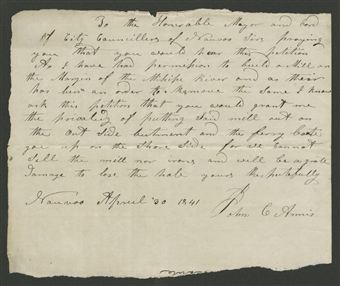 To the Honorable Mayor and
of City Councillers of Nauvoo Sirs praying
you that you would hear this petition
As I have had permission to build a Mill on
the Margin of the River and as their
has ben an order to Remove the Same I know
ask this petition that you would grant me
the of putting Said mill out on
the Out Side butment and the ferry boats
up on the Shore Side for we cannot
Sell the mill nor irons and will be a great
damage to lose the hole yours Respectfully
Nauvoo April 30 1841
John C Annis